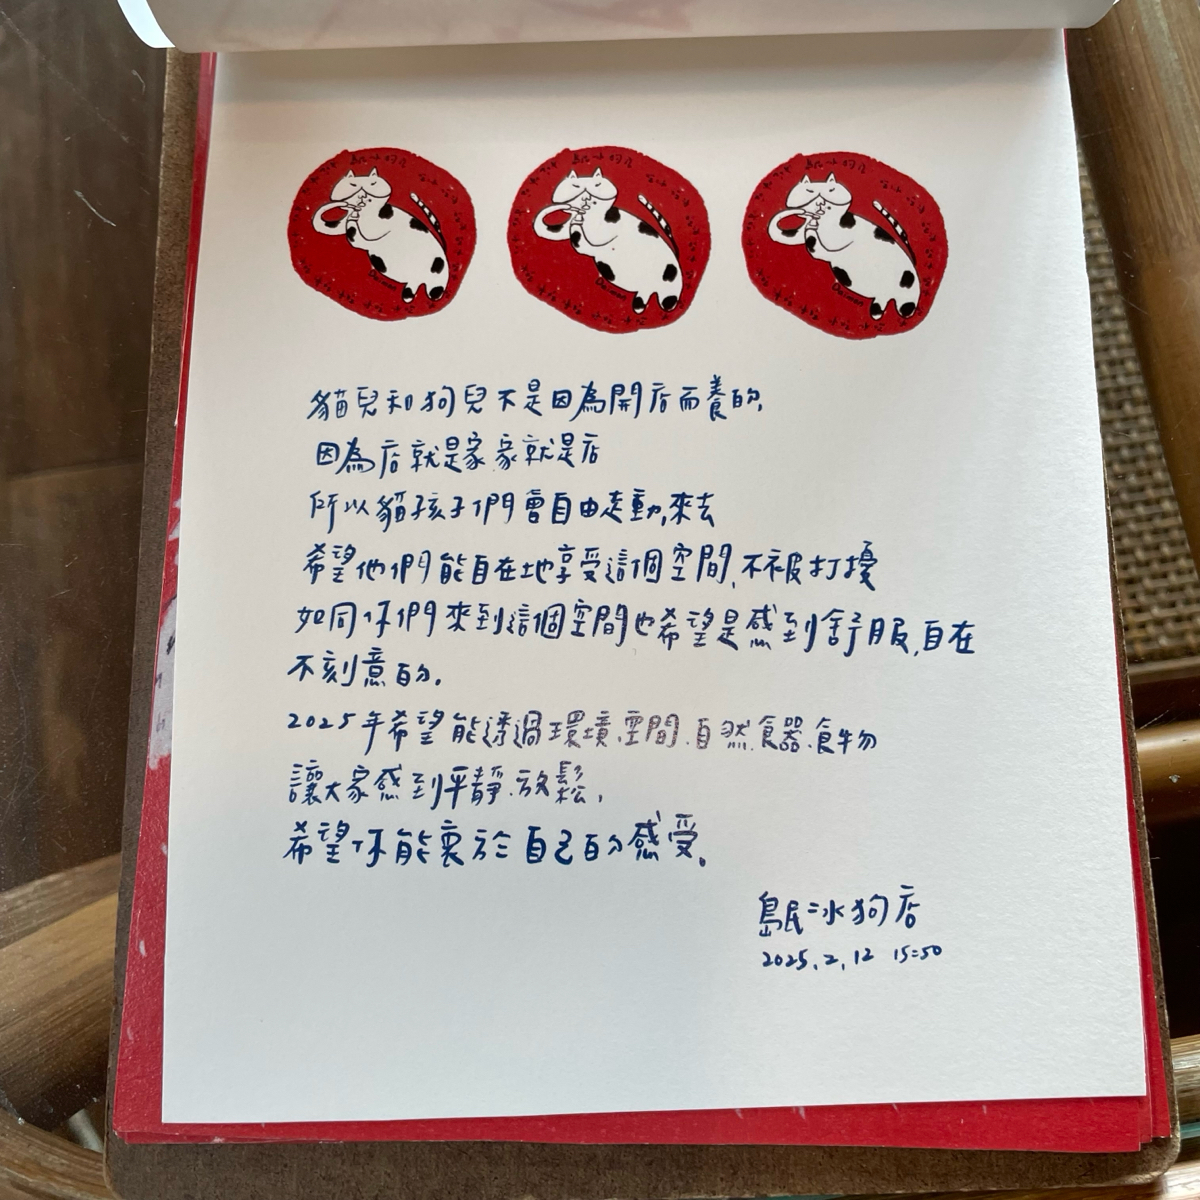 島民冰狗店
島民冰狗店
島民冰狗店
貓兒和狗兒不是因為開店而養的,
因為店就是家 家就是店
所以貓孩子們會自由走動,來去
希望他們能自在地享受這個空間,不被打擾
如同你們來到這個空間也希望是感到舒服,自在
不刻意的.
2025年希望能透過環境.空間.自然.食器.食物
讓大家感到平靜.放鬆,
希望你能衷於自己的感受.
島民:冰狗店
2025.2.12 15:50